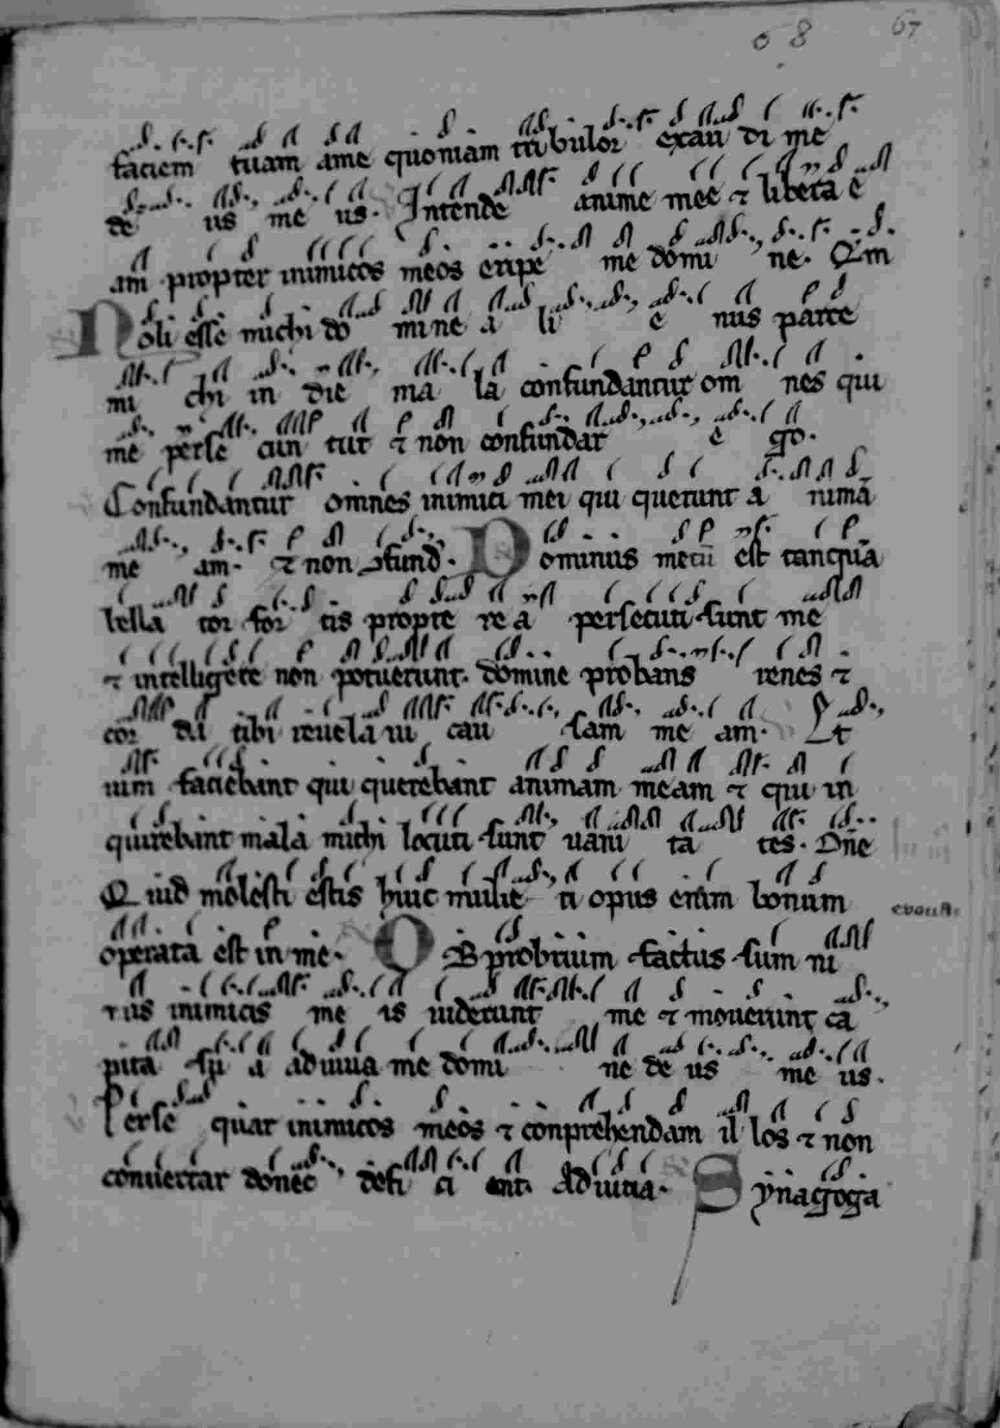 68 67
faciem tuam ame quoniam tribulor exau di me
de us me us. Intende anime mee ⁊ libera e
am propter inimicos meos eripe me domi ne. Qm
Noli esse michi do mine a li e nus parce
mi chi in die ma la confundantur om nes qui
me perse cun tur ⁊ non confundar e go.
Confundantur omnes inimici mei qui querunt a nimā
me am. ⁊ non ɔfund. Dominus mecū est tanquā
bella tor for tis propte re a persecuti sunt me
⁊ intelligere non potuerunt. domine probans renes ⁊
cor da tibi reuela ui cau sam me am. Et
uim faciebant qui querebant animam meam ⁊ qui in
quirebant mala michi locuti sunt uani ta tes. Dn̄e
Quid molesti estis huic mulie ri opus enim bonum
operata est in me. OBprobrium factus sum ni
mis inimicis me is uiderunt me ⁊ mouerunt ca
pita su a adiuua me domi ne de us me us.
Perse quar inimicos meos ⁊ conprehendam il los ⁊ non
conuertar donec defi ci ant. Adiuua. Synagoga